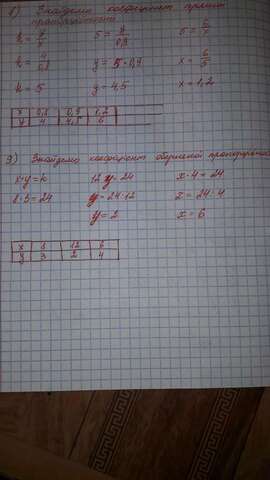 8) Знайдемо коефіцієнт прямої пропорційності
k = y/x 5 = y/0,9 5 = 6/x
k = 4/0,8 y = 5 · 0,9 x = 6/5
k = 5 y = 4,5 x = 1,2
x 0,8 0,9 1,2
y 4 4,5 6
9) Знайдемо коефіцієнт оберненої
x · y = k 12 y = 24 x · 4 = 24
8 · 3 = 24 y = 24 : 12 x = 24 : 4
y = 2 x = 6
x 8 12 6
y 3 2 4